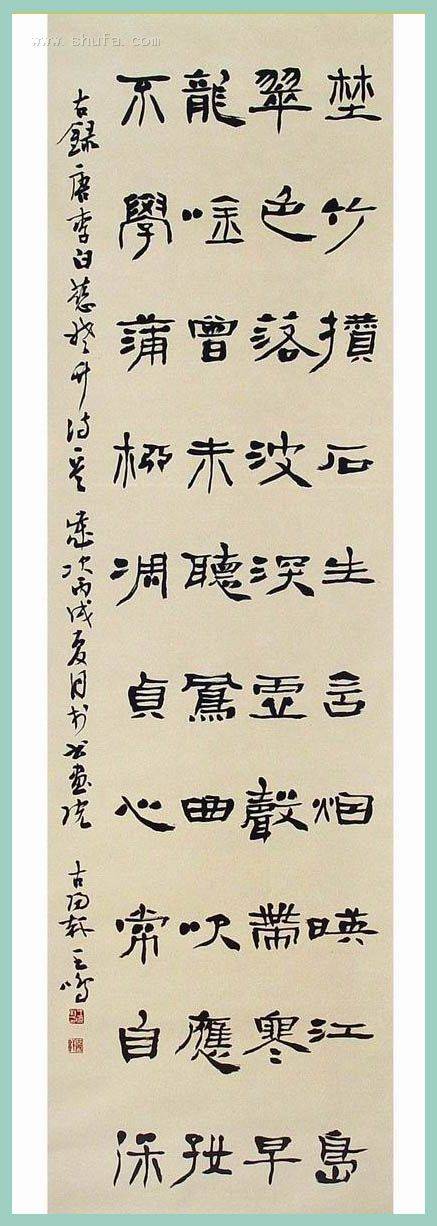 www.shufa.com
埜竹攢石生含烟暎江島
翠色落波深虛聲帶寒早
龍唫曾未聽鳳曲吹應好
不學蒲柳凋貞心常自保
右錄唐李白慈姥竹詩一首歲次丙戌夏月於書畫院